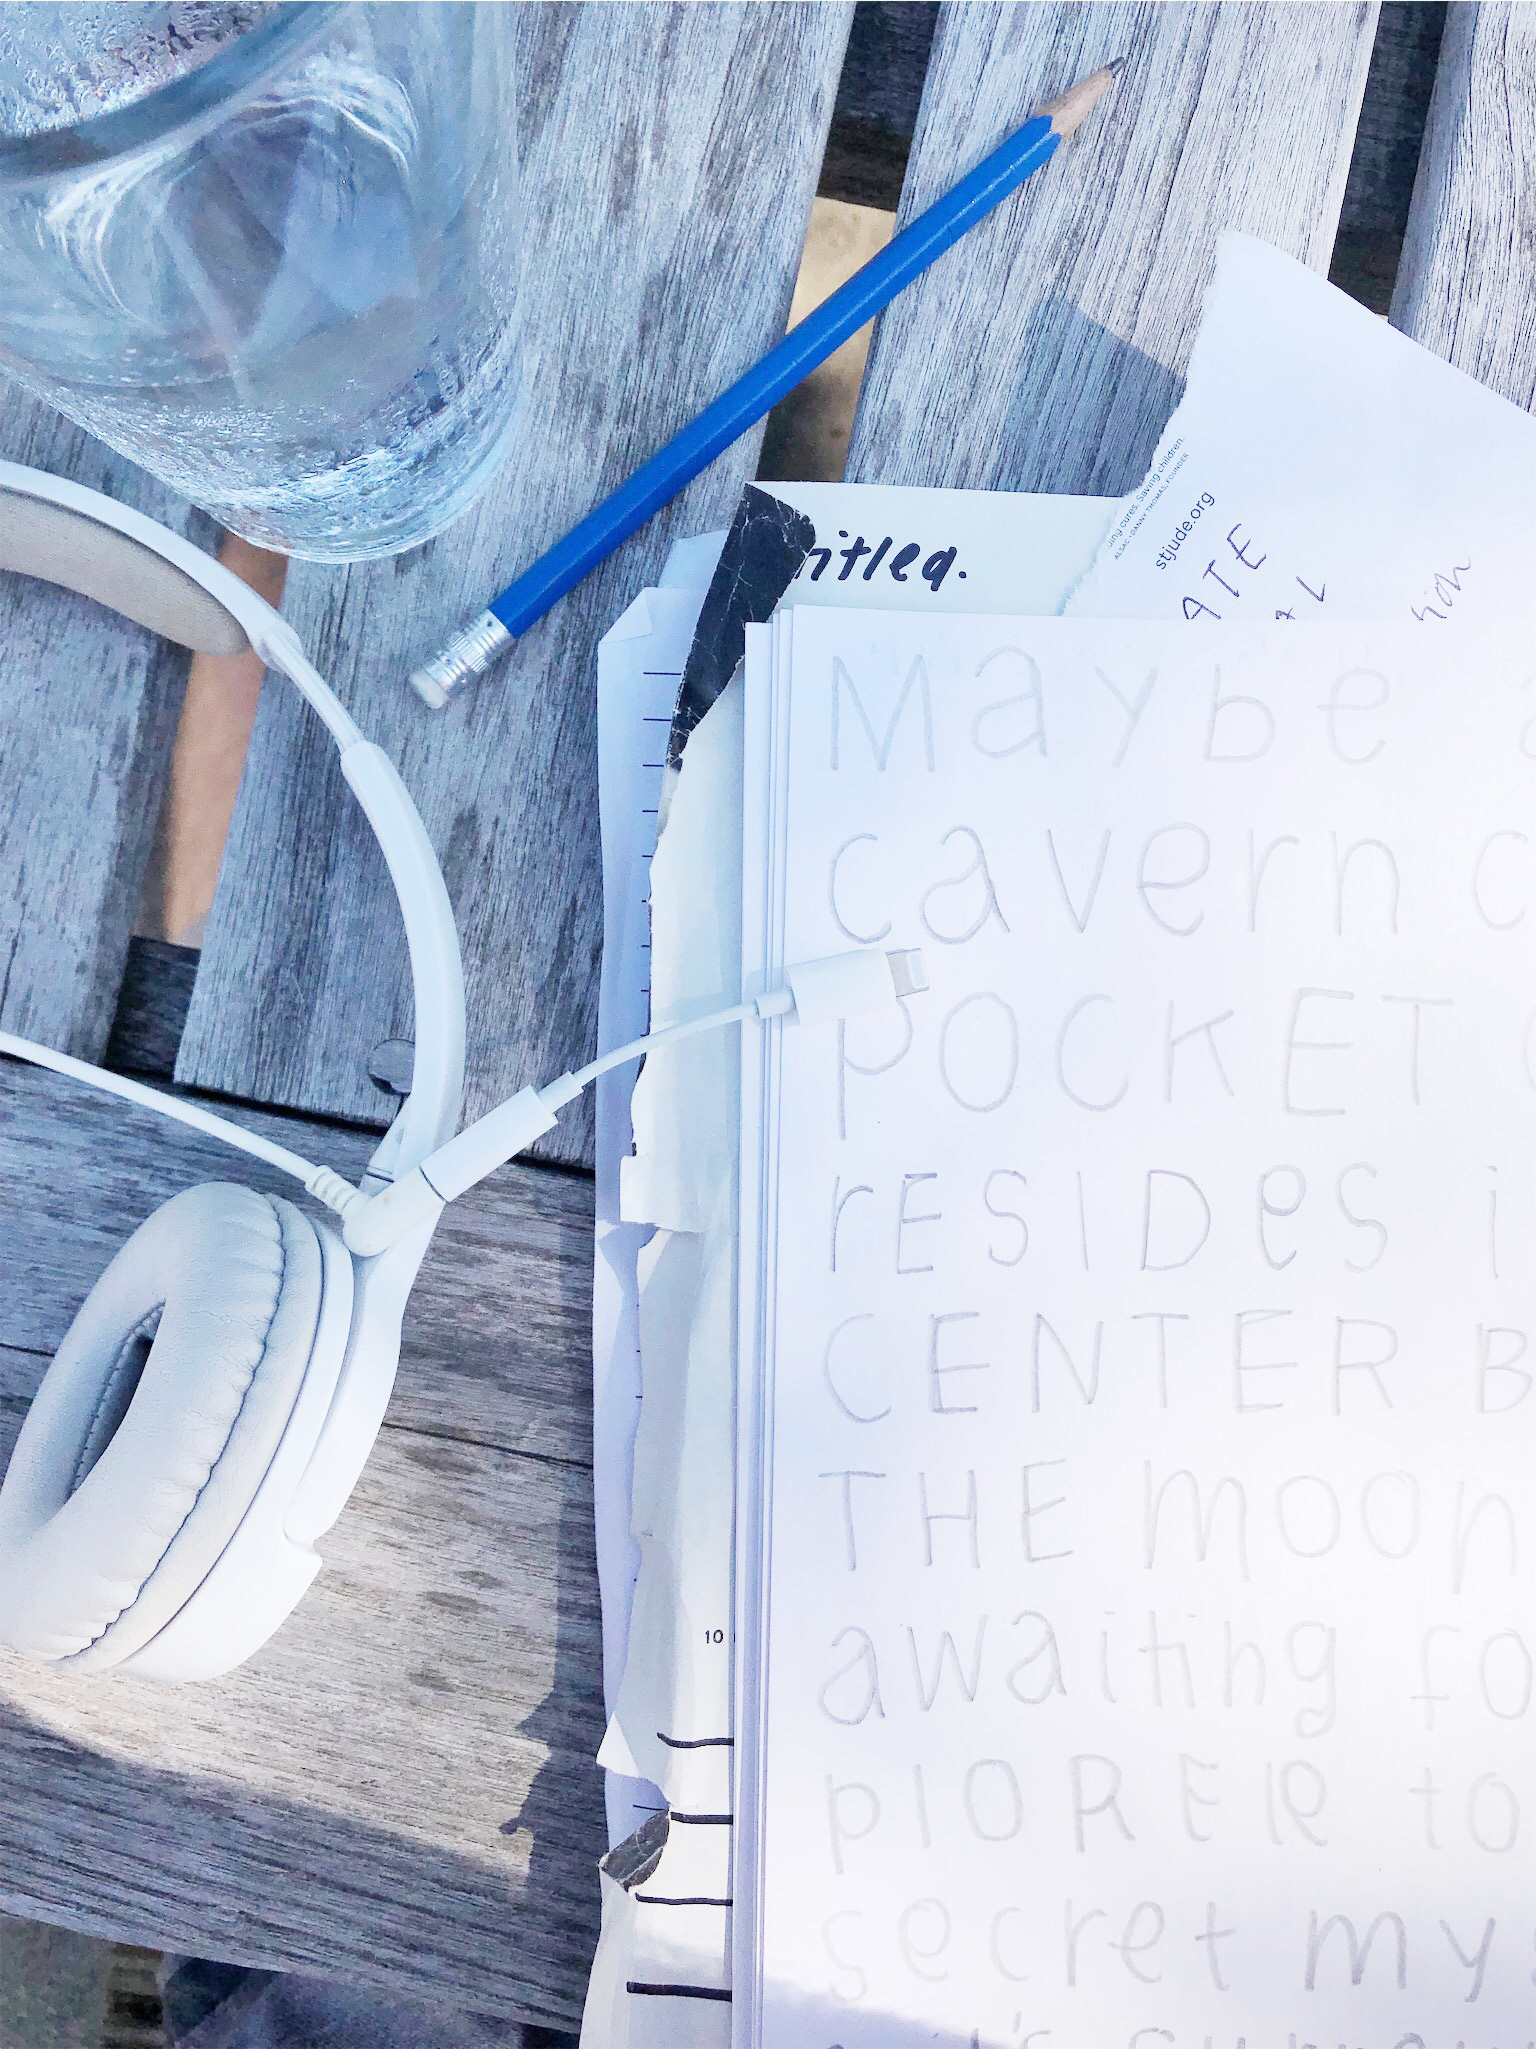 ing cures. Saving children.
ALSAC • DANNY THOMAS, FOUNDER
stjude.org
ATE
ntled.
Maybe
cavern
POCKET
rESIDeS
CENTER B
THE moon
awaiting fo
plORER to
secret my
10